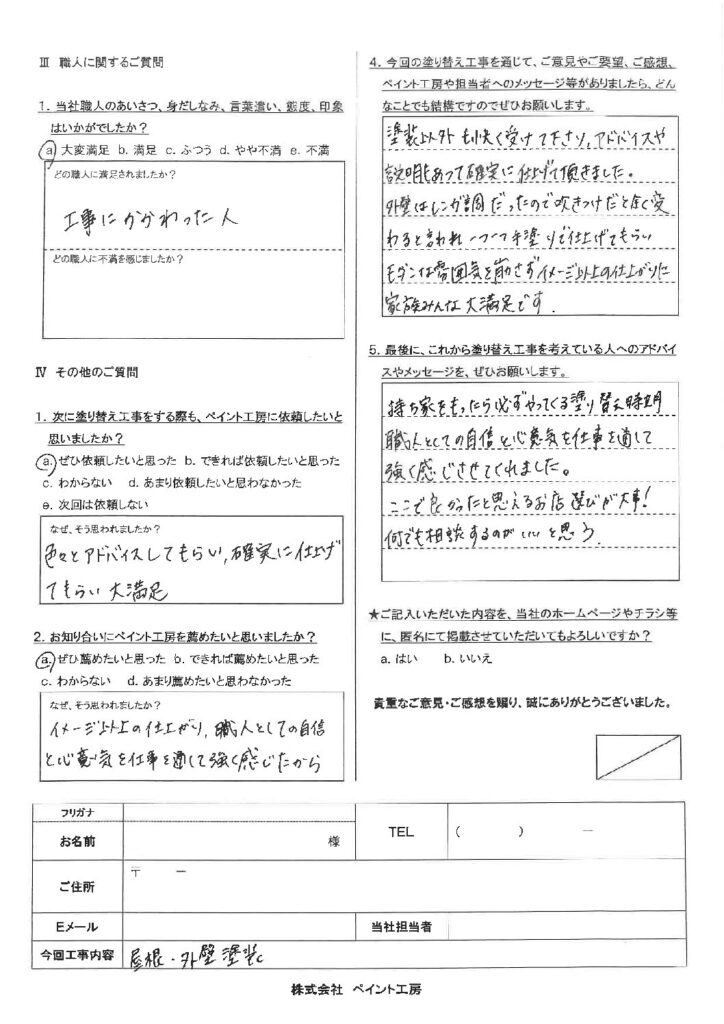 Ⅲ 職人に関するご質問
1. 当社職人のあいさつ、身だしなみ、言葉遣い、態度、印象
はいかがでしたか?
a. 大変満足 b. 満足 c. ふつう d. やや不満 e. 不満
どの職人に満足されましたか?
工事にかかわった人
どの職人に不満を感じましたか?
Ⅳ その他のご質問
1. 次に塗り替え工事をする際も、ペイント工房に依頼したいと
思いましたか?
a. ぜひ依頼したいと思った b. できれば依頼したいと思った
c. わからない d. あまり依頼したいと思わなかった
e. 次回は依頼しない
なぜ、そう思われましたか?
色々とアドバイスしてもらい、確実に仕上げ
てもらい大満足
2. お知り合いにペイント工房を薦めたいと思いましたか?
a. ぜひ薦めたいと思った b. できれば薦めたいと思った
c. わからない d. あまり薦めたいと思わなかった
なぜ、そう思われましたか?
イメージ以上の仕上がり、職人としての自信
と心意気を仕事を通して強く感じたから
4. 今回の塗り替え工事を通じて、ご意見やご要望、ご感想、
ペイント工房や担当者へのメッセージ等がありましたら、どん
なことでも結構ですのでぜひお願いします。
塗装以外も快く受けて下さり、アドバイスや
説明もあって確実に仕上げて頂きました。
外壁はレンガ調だったので吹きつけだと全く変
わると言われ一つ一つ手塗りで仕上げてもらい
モダンな雰囲気を崩さずイメージ以上の仕上がりに
家族みんな大満足です.
5. 最後に、これから塗り替え工事を考えている人へのアドバイ
スやメッセージを、ぜひお願いします。
持ち家をもったら必ずやってくる塗り替え時期
職人としての自信と心意気を仕事を通して
強く感じさせてくれました。
ここで良かったと思えるお店選びが大事!
何でも相談するのがいいと思う.
★ご記入いただいた内容を、当社のホームページやチラシ等
に、匿名にて掲載させていただいてもよろしいですか?
a. はい b. いいえ
貴重なご意見・ご感想を賜り、誠にありがとうございました。
フリガナ
お名前 様 TEL ( ) ー
ご住所 〒 ー
Eメール 当社担当者
今回工事内容 屋根・外壁塗装
株式会社 ペイント工房